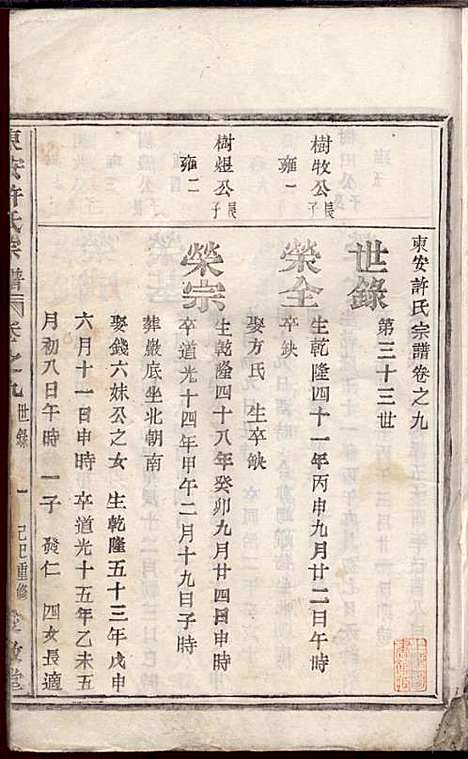 東安許氏宗譜卷之九
世錄 第三十三世
樹牧公長子
雍一
榮全
生乾隆四十一年丙申九月廿二日午時
卒缺
娶方氏 生卒缺
樹煜公長子
雍二
榮宗
生乾隆四十八年癸卯九月廿四日申時
卒道光十四年甲午二月十九日子時
葬嚴底坐北朝南
娶錢六妹公之女 生乾隆五十三年戊申
六月十一日申時 卒道光十五年乙未五
月初八日午時 一子 發仁 四女長適
東安許氏宗譜 卷之九 世錄 一 己巳重修